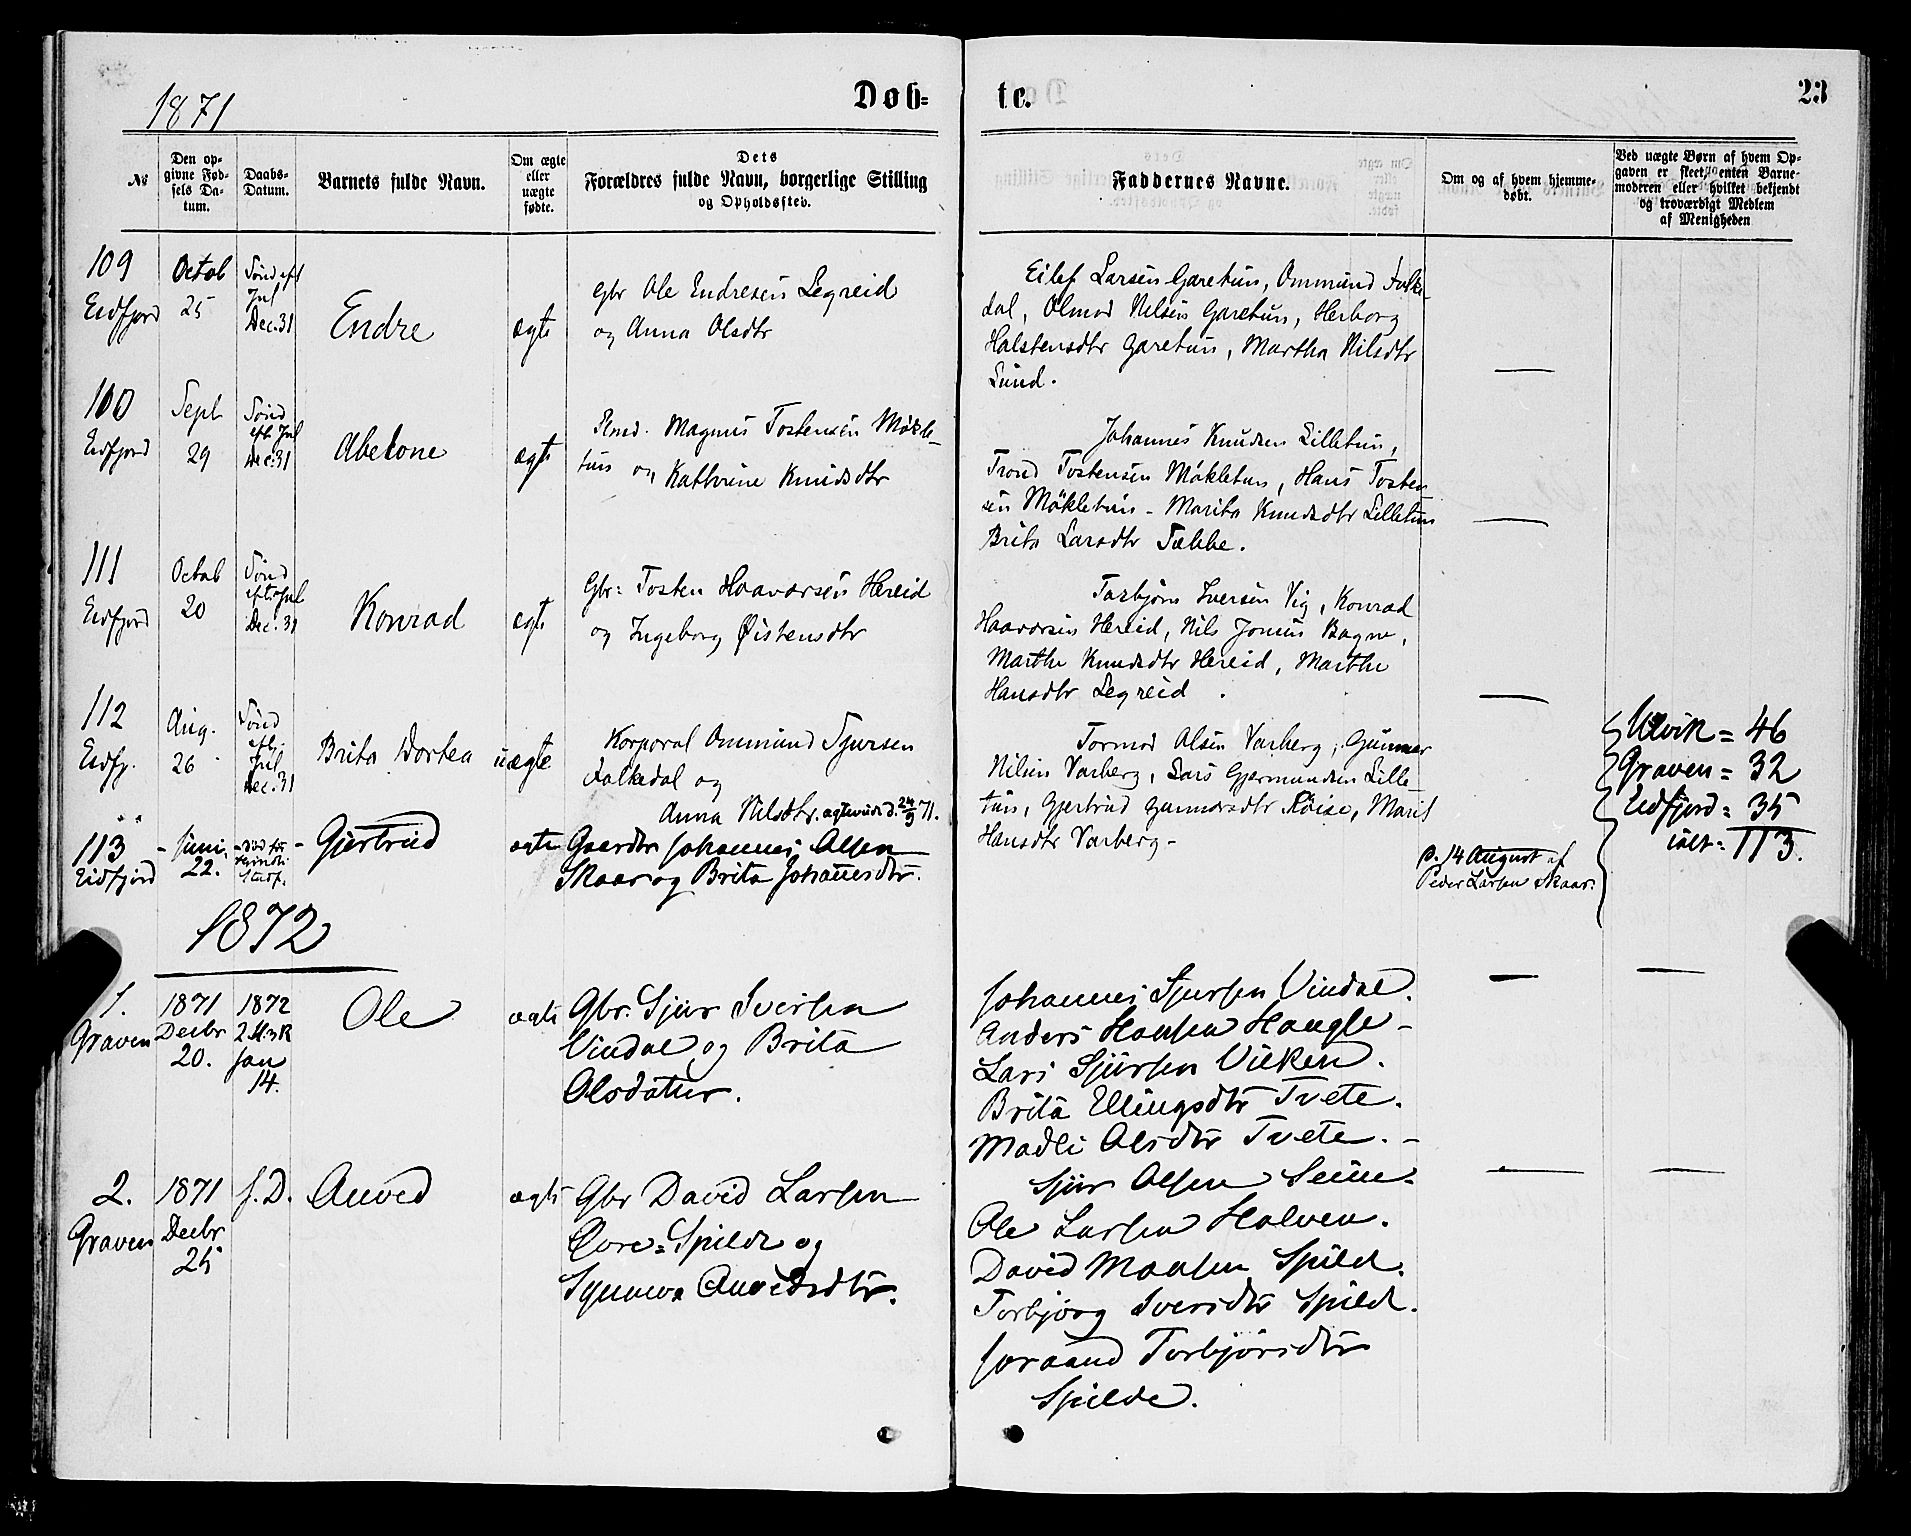 1871
Døb=
te.
23
No
Den op=
givne Fød=
sels Da=
tum.
Daabs=
Datum.
Barnets fulde Navn.
Om ægte
eller
uægte
fødte.
Dets
Forældres fulde Navn, borgerlige Stilling
og Opholdssted.
Faddernes Navne.
Om og af hvem hjemme=
døbt.
Ved uægte Børn af hvem Op=
gaven er skeet, enten Barne=
moderen eller hvilket bekjendt
og troværdigt Medlem
af Menigheden
109
Eidfjord
Octob
25
Sønd eft
Jul
Dec. 31
Endre
ægte
Gbr Ole Endresen Legreid
og Anna Olsdtr
Eilef Larsen Garetun, Ommund Falke-
dal, Olmod Nilsen Garetun, Herborg
Halstensdtr Garetun, Martha Nilsdtr
Lund.
100
Eidfjord
Sept
29
Sønd
eft Jul
Dec. 31
Abelone
ægte
Magnus Tostensen Møkle-
tun og Kathrine Knudsdtr
Johannes Knudsen Lilletun,
Trond Tostensen Møkletun, Hans Tosten
sen Møkletun - Marita Knudsdtr Lilletun
Brita Larsdtr Tæbbe.
111
Eidfjord
Octob
20
Sønd
eft. Jul
Dec. 31
Konrad
ægte
Gbr: Tosten Haavarsen Hereid
og Ingeborg Østensdtr
Torbjørn Iversen Vig, Konrad
Haavarsen Hereid, Nils Bagne,
Marthe Knudsdtr Hereid, Marthe
Hansdtr Legreid.
112
Eidfj.
Aug.
26
Sønd
eft.
Jul
Dec. 31
Brita Dortea
uægte
Korporal Ommund Sjursen
Falkedal og
Anna Nilsdtr. ægteviede d. 24/9 71.
Tormod Olsen Varberg, Gunnar
Nilsen Varberg, Lars Gjermundsen Lille
tun, Gjertrud Gunnarsdtr Røise, Marit
Hansdtr Varberg -
113
Eidfjord
Juni
22.
død før
Gjertrud
ægte
Gaardbr Johannes Olsen
Skaar og Brita Johannesdtr.
p. 14 August af
Peder Larsen Skaar.
Ulvik = 46
Graven = 32
Eidfjord = 35
ialt = 113.
1872
1.
Graven
1871
Decbr
20.
1872
Jan
14.
Ole
ægte
Gbr. Sjur Iversen
Vindal og Brita
Olsdatter.
Johannes Sjursen Vindal.
Anders Hansen Haugse -
Lars Sjursen Viken.
Brita Ellingsdtr Tvete.
Madli Olsdtr Tvete. -
2.
Graven
1871
Decbr
25
s. D.
Anved
ægte
Gbr David Larsen
Øvre=Spilde og
Synneva Anvedsdtr.
Sjur Olsen Seim.
Ole Larsen Halven.
David Monsen Spilde.
Torbjørg Iversdtr Spilde.
Joraand Torbjørnsdtr
Spilde.